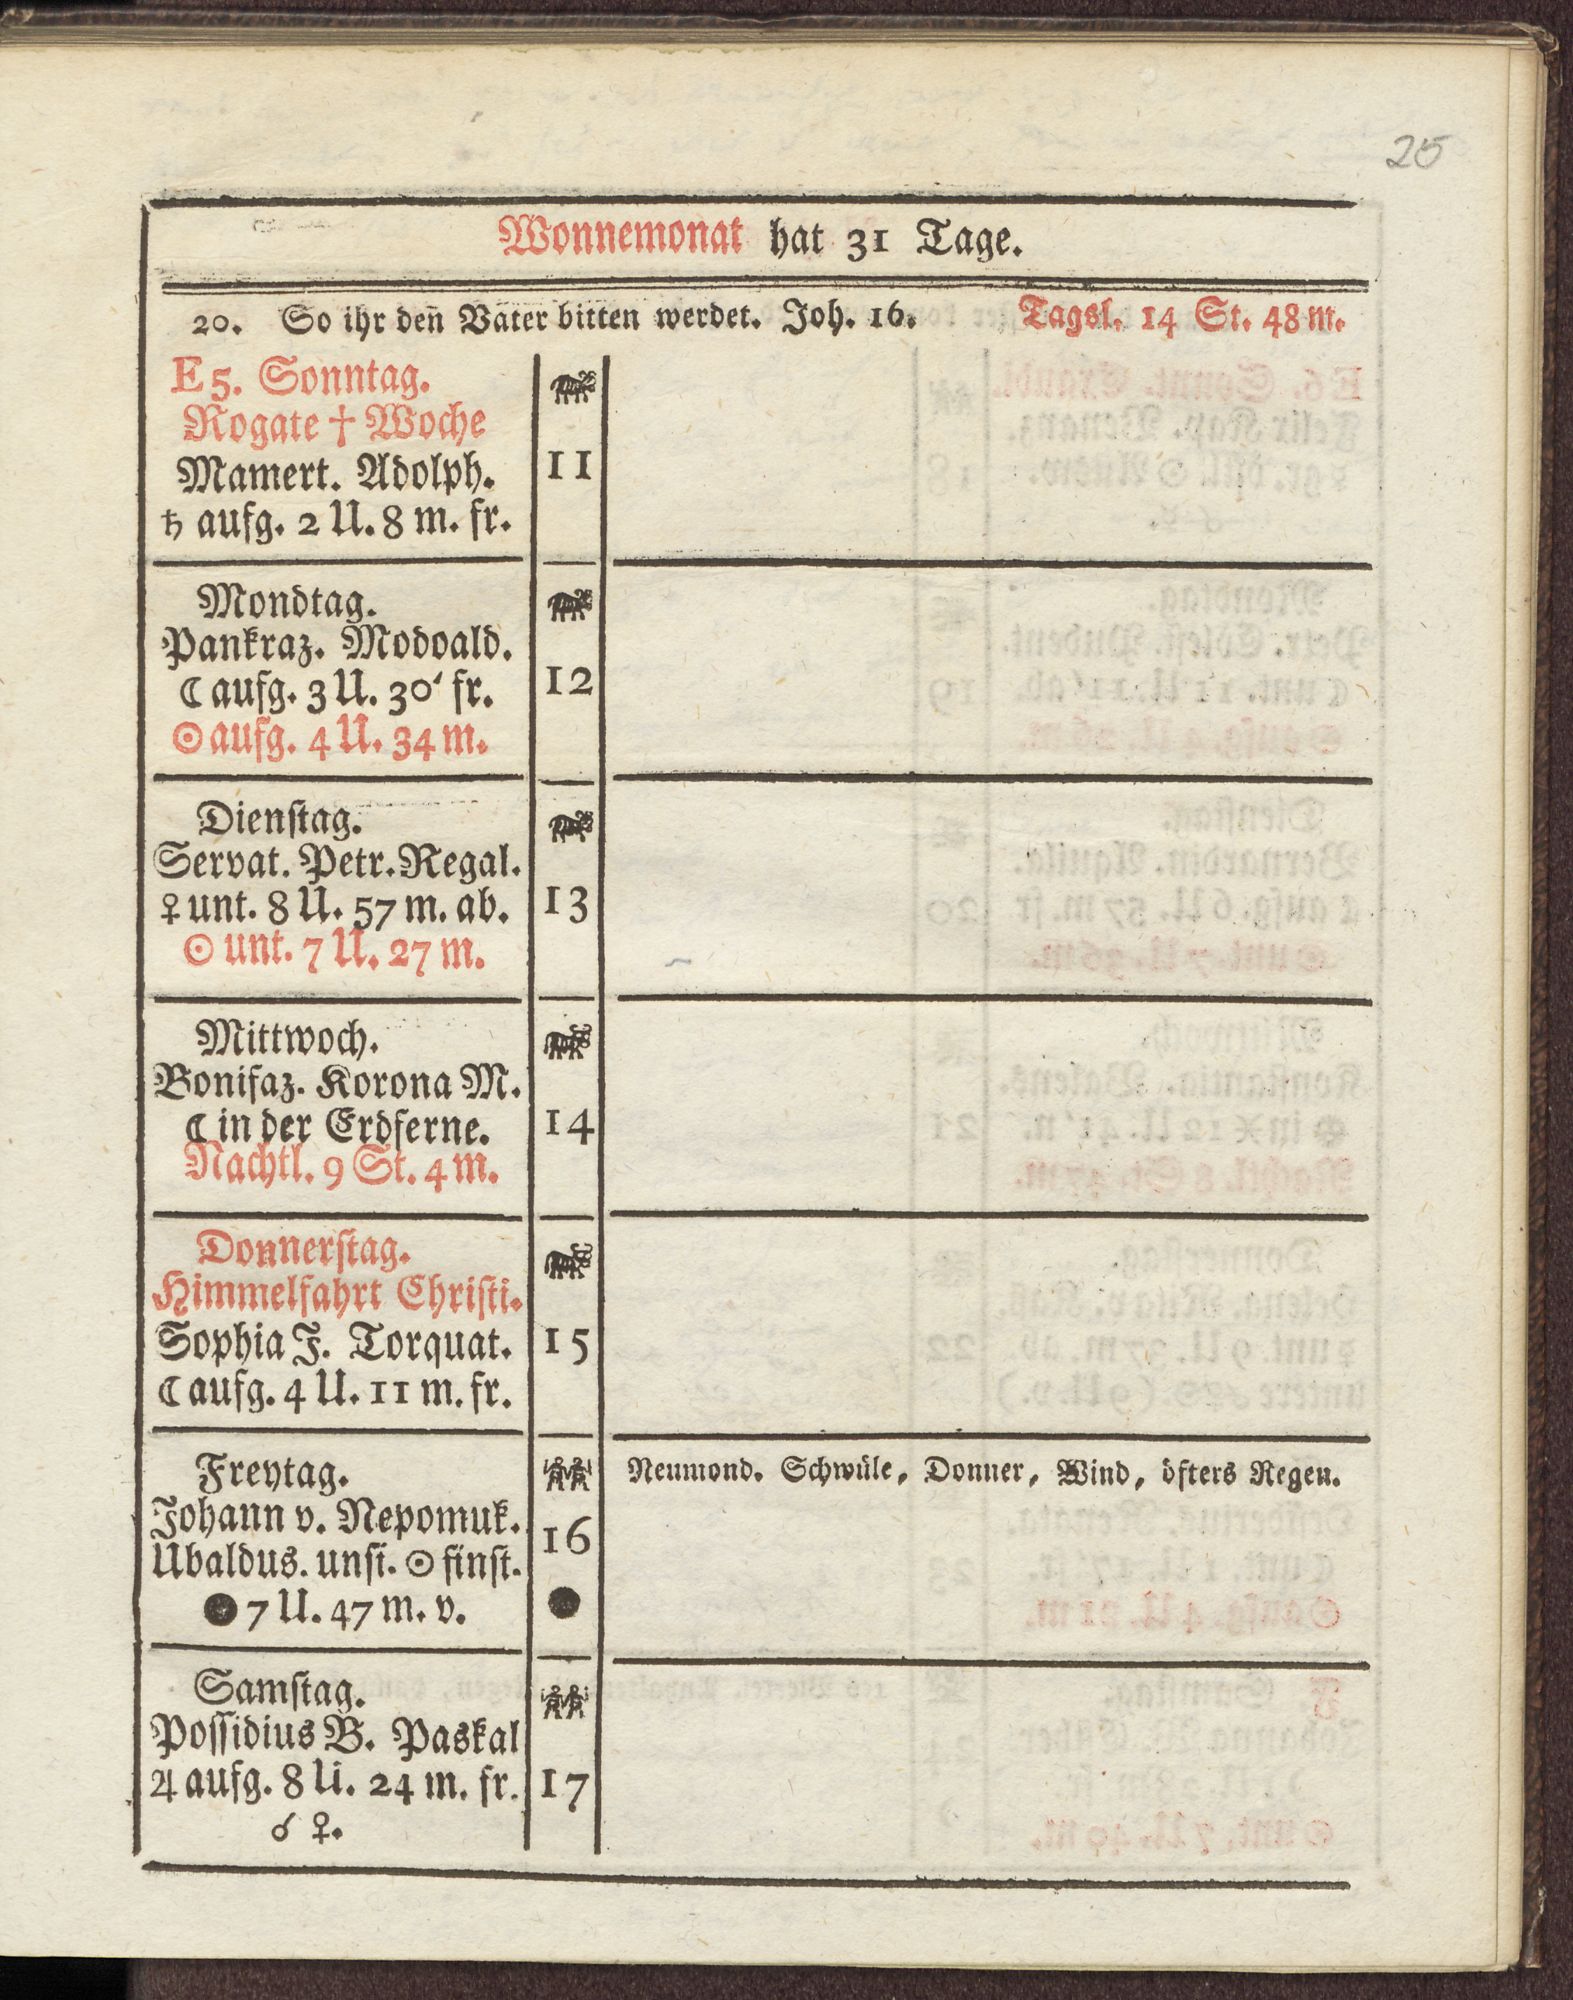 25
Wonnemonat hat 31 Tage.
20. So ihr den̄ Vater bitten werdet. Joh. 16. Tagsl. 14 St. 48 m.
E 5. Sonntag.
Rogate † Woche
Mamert. Adolph.
♄ aufg. 2 U. 8 m. fr.
11
Mondtag.
Pankraz. Modoald.
☾ aufg. 3 U. 30' fr.
☉ aufg. 4 U. 34 m.
12
Dienſtag.
Servat. Petr. Regal.
♀ unt. 8 U. 57 m. ab.
☉ unt. 7 U. 27 m.
13
Mittwoch.
Bonifaz. Korona M.
☾ in der Erdferne.
Nachtl. 9 St. 4 m.
14
Donnerſtag.
Himmelfahrt Chriſti.
Sophia J. Torquat.
☾ aufg. 4 U. 11 m. fr.
15
Freytag.
Johann v. Nepomuk.
Ubaldus. unſi. ☉ finſt.
● 7 U. 47 m. v.
16
Neumond. Schwüle, Donner, Wind, öfters Regen.
Samſtag.
Poſſidius B. Paskal
♃ aufg. 8 U. 24 m. fr.
☌ ♀.
17